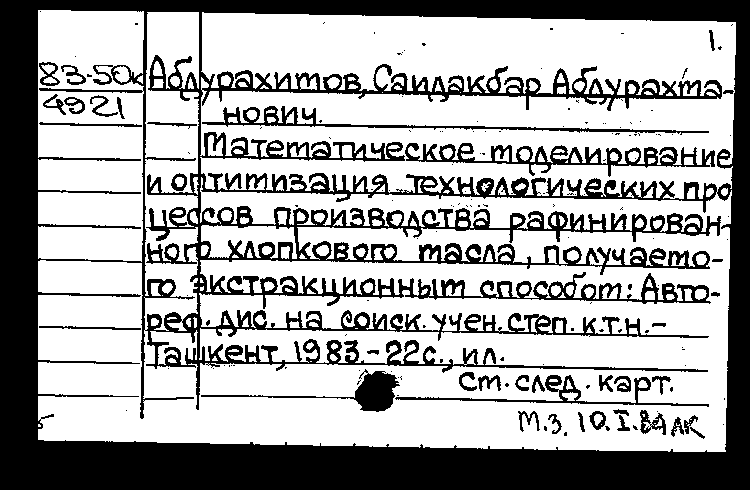 1.
83-50к Абдурахимов, Саидакбар Абдурахма-
4921 нович.
Математическое моделирование
и оптимизация технологических про
цессов производства рафинирован-
ного хлопкового масла, получаемо-
го экстракционным способом: Авто-
реф. дис. на соиск. учен. степ. к.т.н.-
Ташкент, 1983.-22с., ил.
См. след. карт.
М.З. 10.I.84